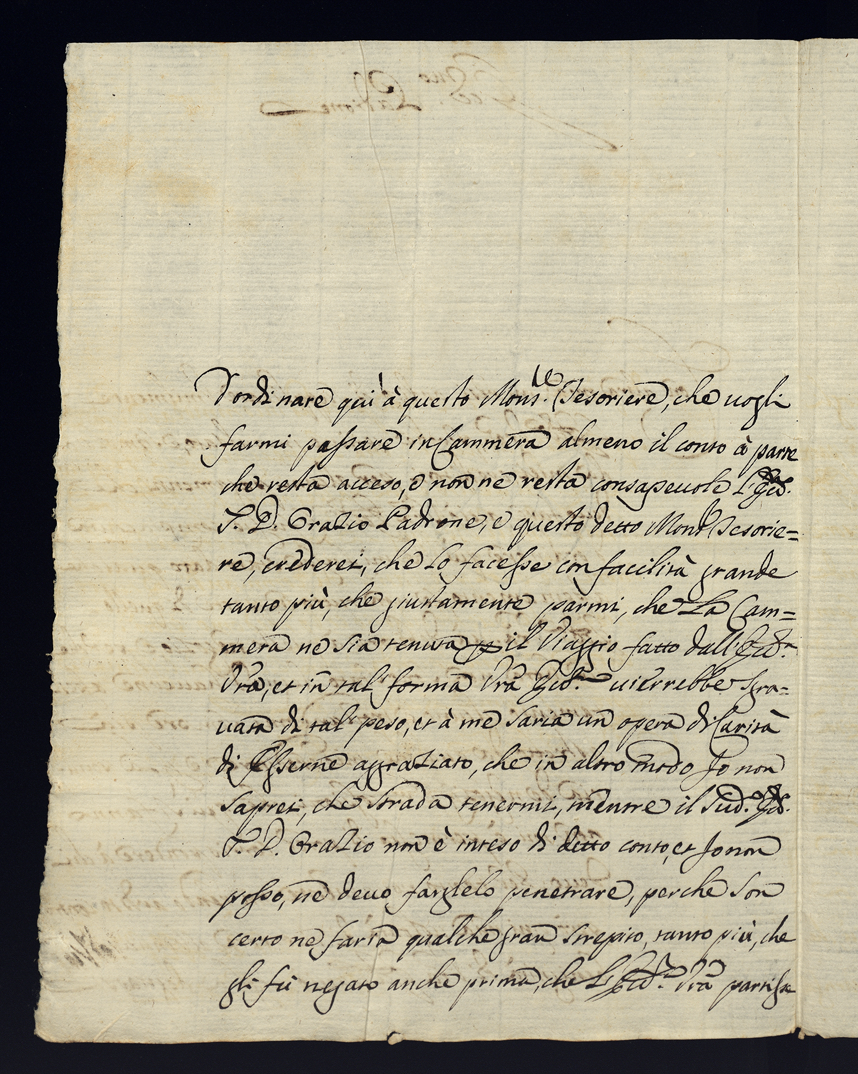 D'ordinare quì à questo Mons.re Tesoriere, che uogli
farmi passare in Cammera almeno il conto à parte
che resta acceso, e non ne resta consapeuole l'Ecc.
S. D. Orazio Padrone, e questo detto Mons.r Tesorie=
re, crederei, che lo facesse con facilità grande
tanto più, che giustamente parmi, che La Cam=
mera ne sia tenuta p il Viaggio fatto dall'Ecc.a
Vra, et in tal forma Vra Ecc.a uierrebbe sgra=
uata di tal peso, et à me saria un opera di Carità
di Esserne aggraziato, che in altro modo Io non
saprei, che strada tenermi, mentre il Sud.o Ecc.
S. D. Orazio non è inteso di detto conto, et Io non
posso, ne deuo farglelo penetrare, perche son
certo ne faria qualche gran strepito, tanto più, che
gli fù negato anche prima, che L'Ecc.a Vra partissa